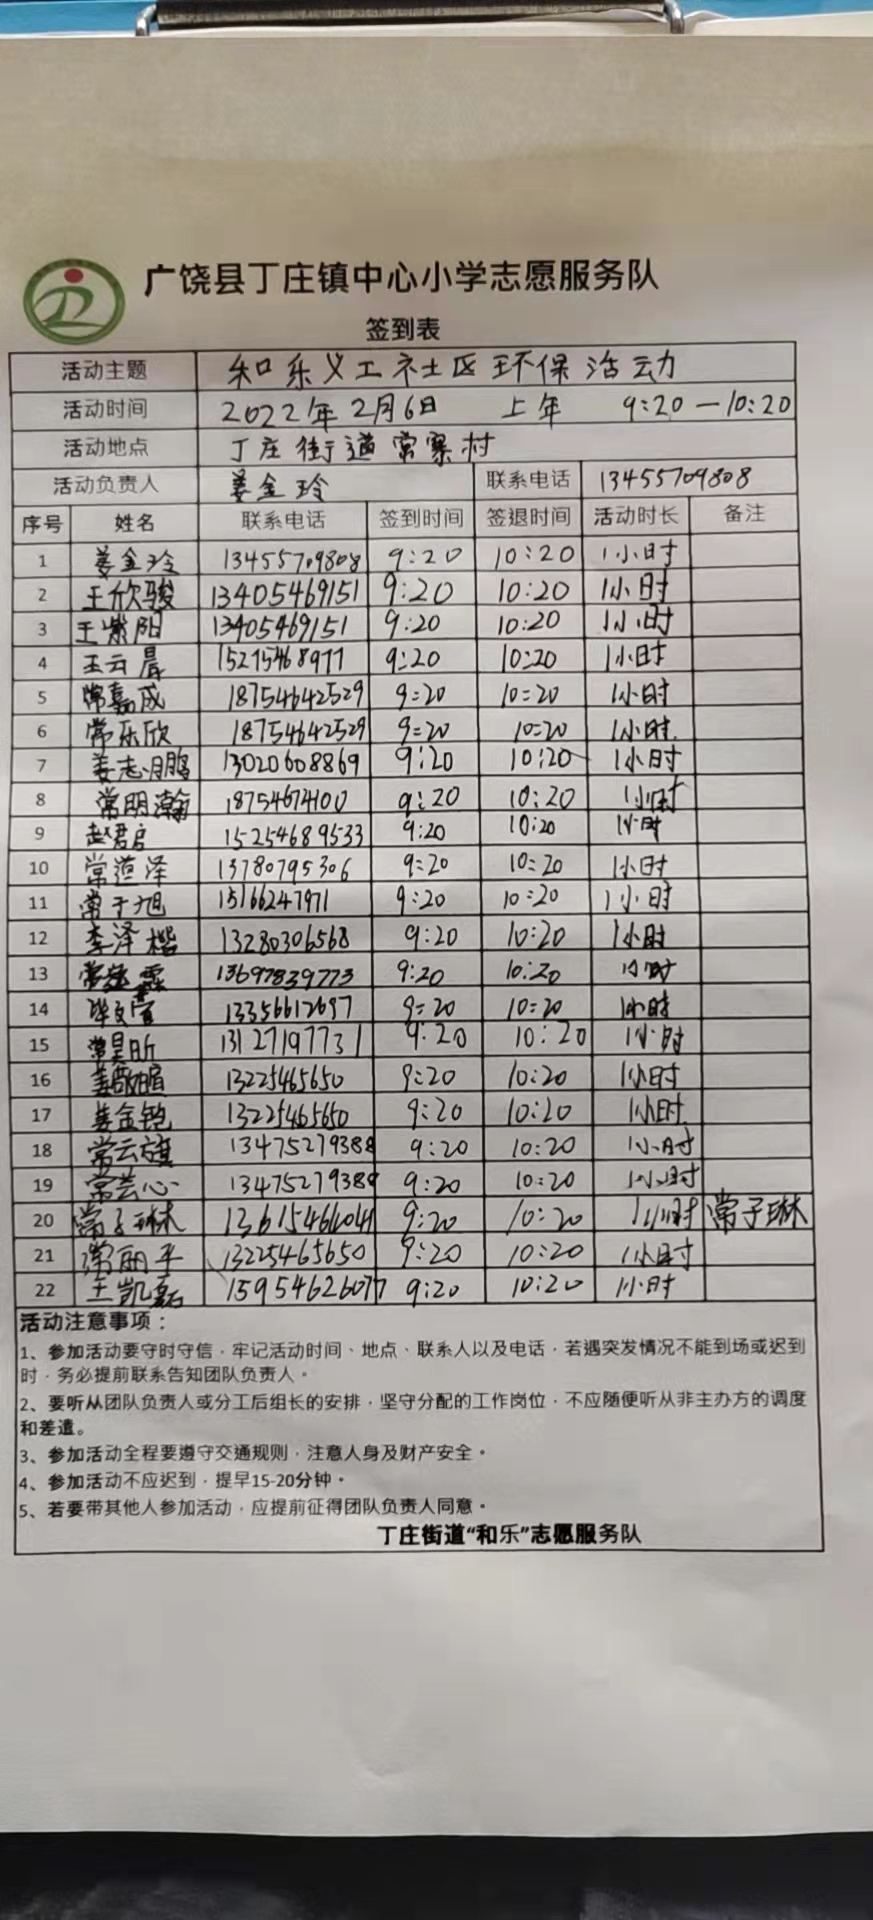 广饶县丁庄镇中心小学志愿服务队
签到表
活动主题 和乐义工社区环保活动
活动时间 2022年2月6日 上年 9:20—10:20
活动地点 丁庄街道常寨村
活动负责人 姜金玲 联系电话 13455709808
序号 姓名 联系电话 签到时间 签退时间 活动时长 备注
1 姜金玲 13455709808 9:20 10:20 1小时
2 王欣骏 13405469151 9:20 10:20 1小时
3 王紫阳 13405469151 9:20 10:20 1小时
4 王云晨 15275468977 9:20 10:20 1小时
5 常嘉成 18754642529 9:20 10:20 1小时
6 常乐欣 18754642529 9:20 10:20 1小时
7 姜志鹏 13020608869 9:20 10:20 1小时
8 常明瀚 18754674100 9:20 10:20 1小时
9 赵君启 15254689533 9:20 10:20 1小时
10 常范泽 13780795306 9:20 10:20 1小时
11 常于旭 15166247971 9:20 10:20 1小时
12 李泽楷 13280306568 9:20 10:20 1小时
13 13697839773 9:20 10:20 1小时
14 13356612697 9:20 10:20 1小时
15 常昊昕 13127197731 9:20 10:20 1小时
16 13225465650 9:20 10:20 1小时
17 姜金 13225465650 9:20 10:20 1小时
18 常云旗 13475279388 9:20 10:20 1小时
19 常芸心 13475279388 9:20 10:20 1小时
20 常子琳 13615464041 9:20 10:20 1小时 常子琳
21 常丽平 13225465650 9:20 10:20 1小时
22 王凯磊 15954626077 9:20 10:20 1小时
活动注意事项：
1、参加活动要守时守信，牢记活动时间、地点、联系人以及电话，若遇突发情况不能到场或迟到
时，务必提前联系告知团队负责人。
2、要听从团队负责人或分工后组长的安排，坚守分配的工作岗位，不应随便听从非主办方的调度
和差遣。
3、参加活动全程要遵守交通规则，注意人身及财产安全。
4、参加活动不应迟到，提早15-20分钟。
5、若要带其他人参加活动，应提前征得团队负责人同意。
丁庄街道“和乐”志愿服务队